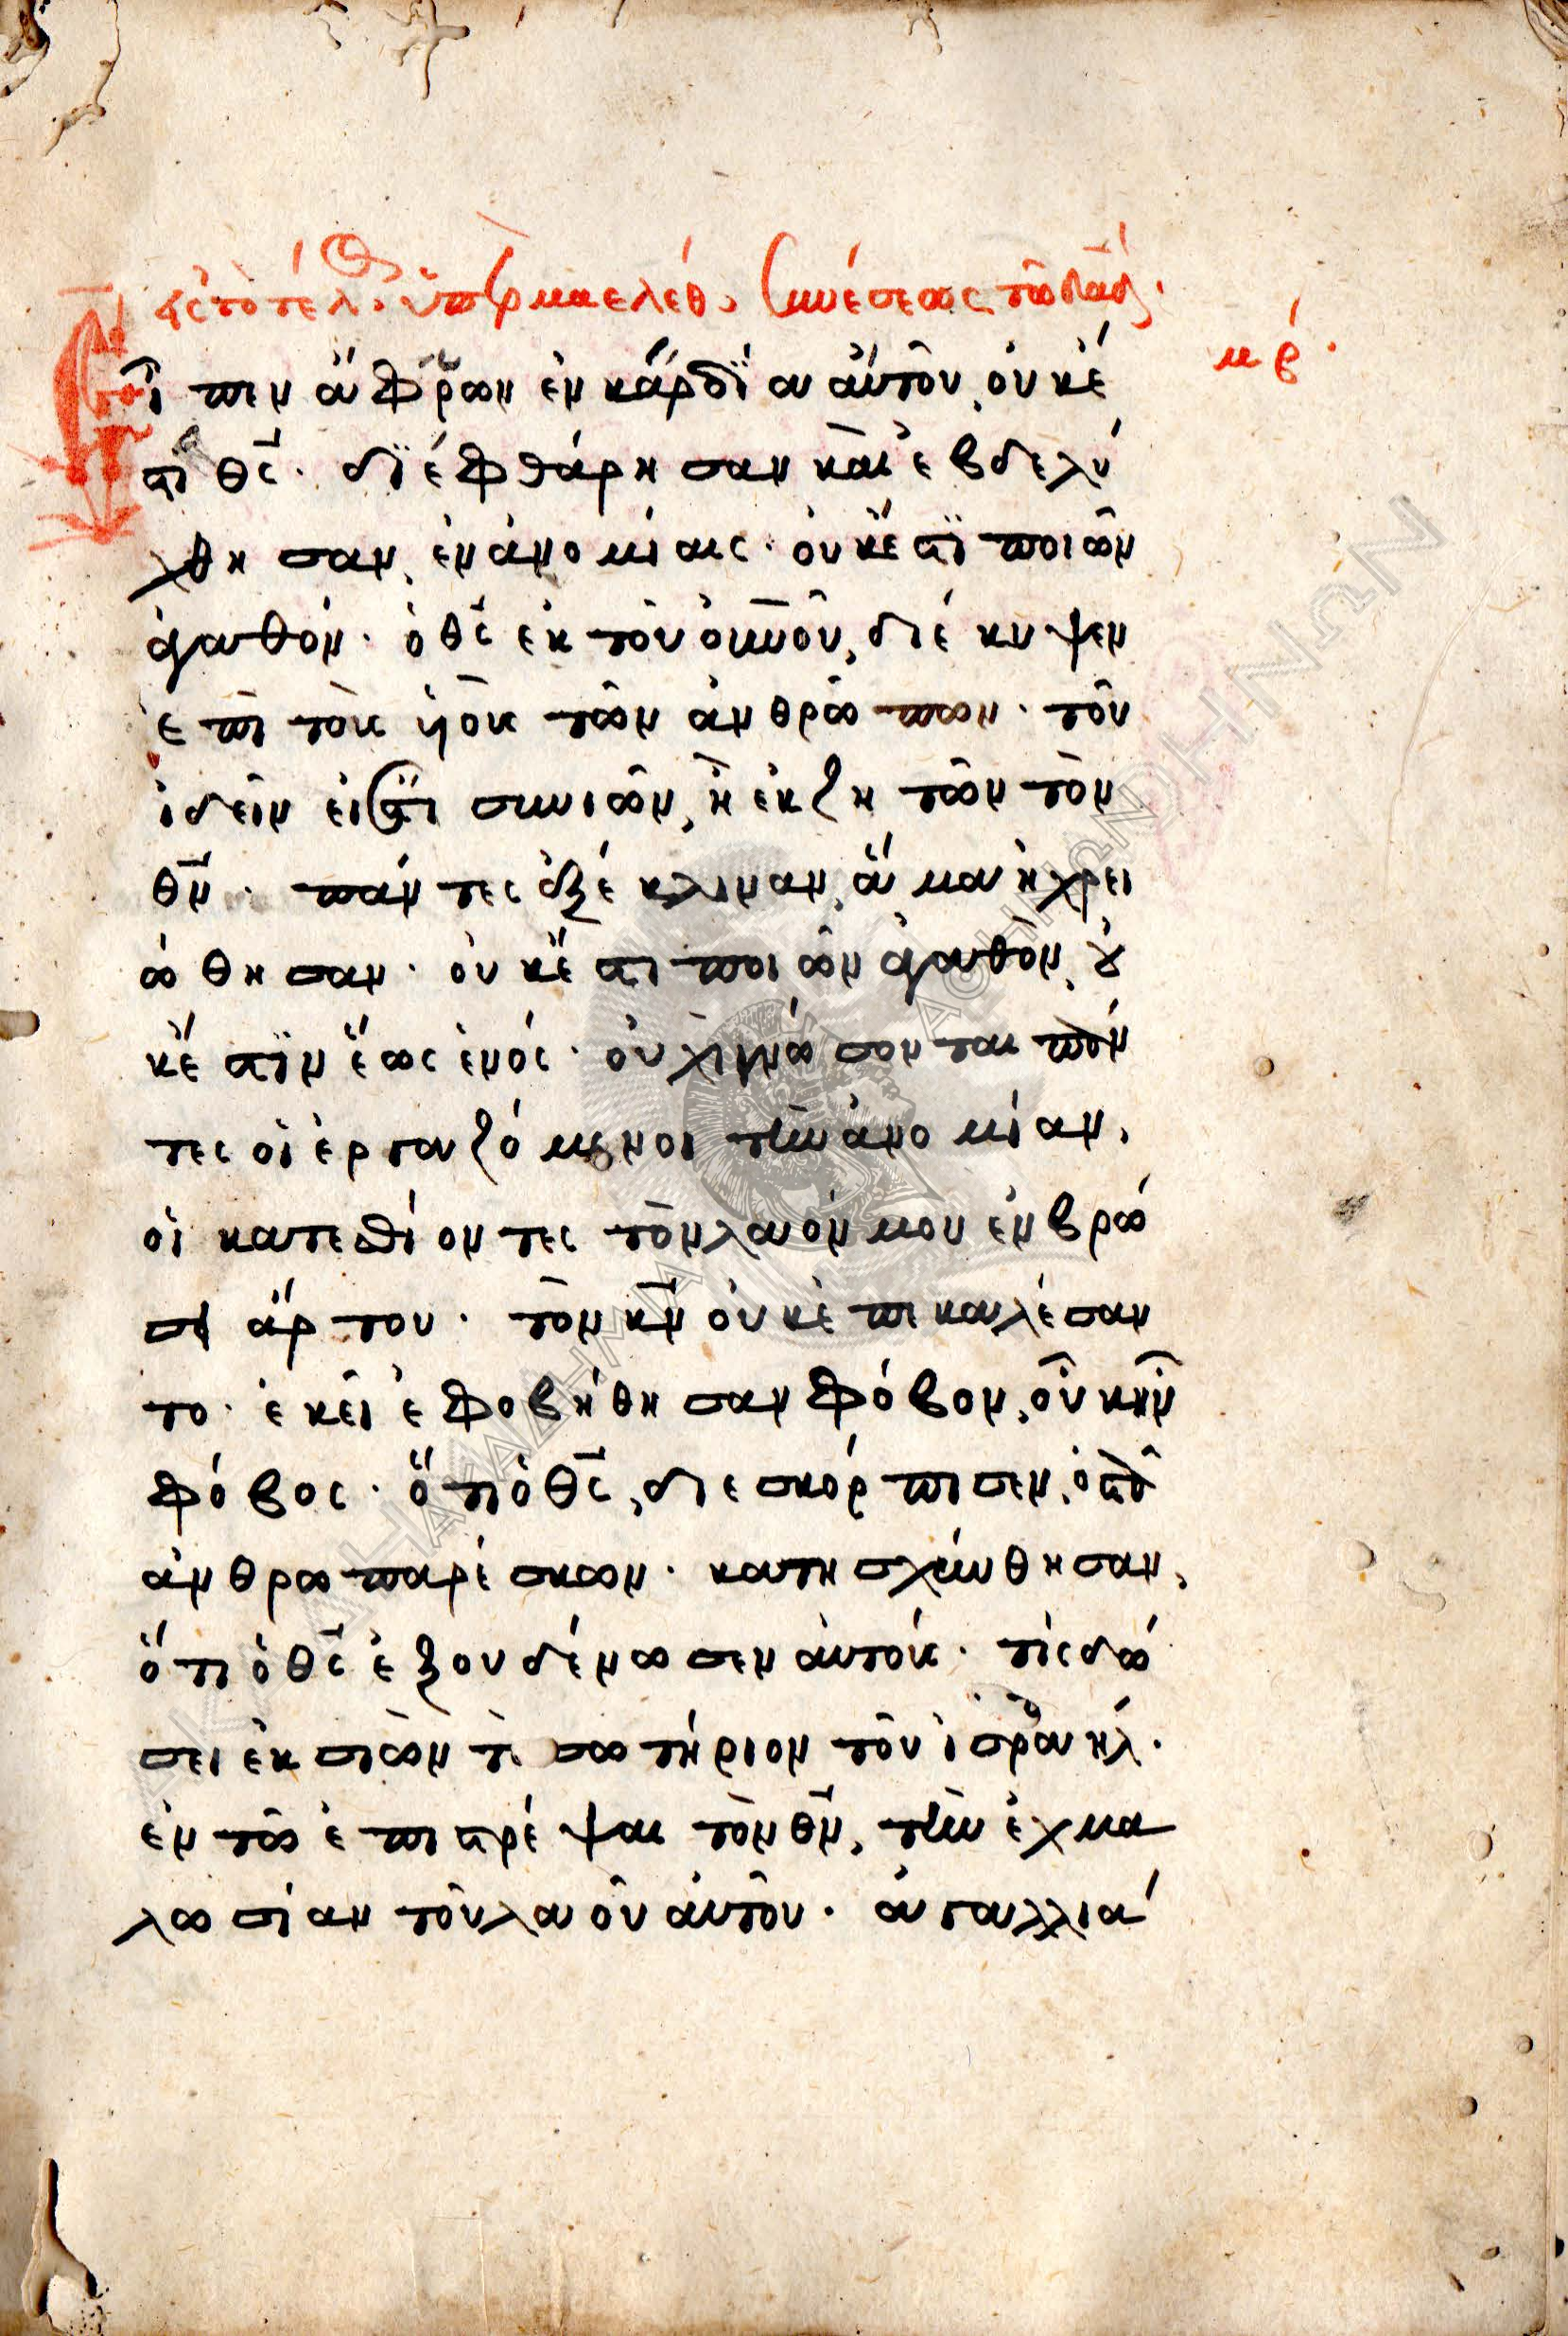 εἰς τὸ τέλος, ὑπὲρ μαελέθ, συνέσεως τῶ δαδ.
νβ.
Εἶπεν ἄφρων ἐν καρδία αὐτοῦ, οὐκ έ
στι θς. διέφθάρησαν καὶ ἐβδελύ
χθησαν, ἐν ἀνομίαις. οὐκ ἔστι ποιῶν
ἀγαθόν. ὁ θς ἐκ τοῦ οὐνοῦ, διέκυψεν
ἐπὶ τοὺς ὑοὺς τῶν ἀνθρώπων. τοῦ
ἰδεῖν εἰ ἔστι συνιῶν, ἢ ἐκζητῶν τὸν
θν. πάντες ἐξέκλιναν, ἅμα ἠχρει
ώθησαν. οὐκ ἔστι ποιῶν ἀγαθὸν, οὐ
κ ἔστιν ἕως ἑνός. οὐχὶ γνώσονται πάν
τες οἱ ἐργαζόμενοι τὴν ἀνομίαν,
οἱ κατεσθίοντες τὸν λαόν μου ἐν βρώ
σει ἄρτου. τὸν κν οὐκ ἐπικαλέσαν
το. ἐκεῖ ἐφοβήθησαν φόβον, οὗ οὐκ ἦν
φόβος. ὅτι ὁ θς, διεσκόρπισεν, ὀστᾶ
ἀνθρωπαρέσκων. κατησχύνθησαν,
ὅτι ὁ θς ἐξουδένωσεν αὐτούς. τίς δώ
σει ἐκ σιὼν τὸ σωτήριον τοῦ ἰσραήλ.
ἐν τῶ ἐπιστρέψαι τὸν θν, τὴν ἐχμα
λωσίαν τοῦ λαοῦ αὐτοῦ. ἀγαλλιά